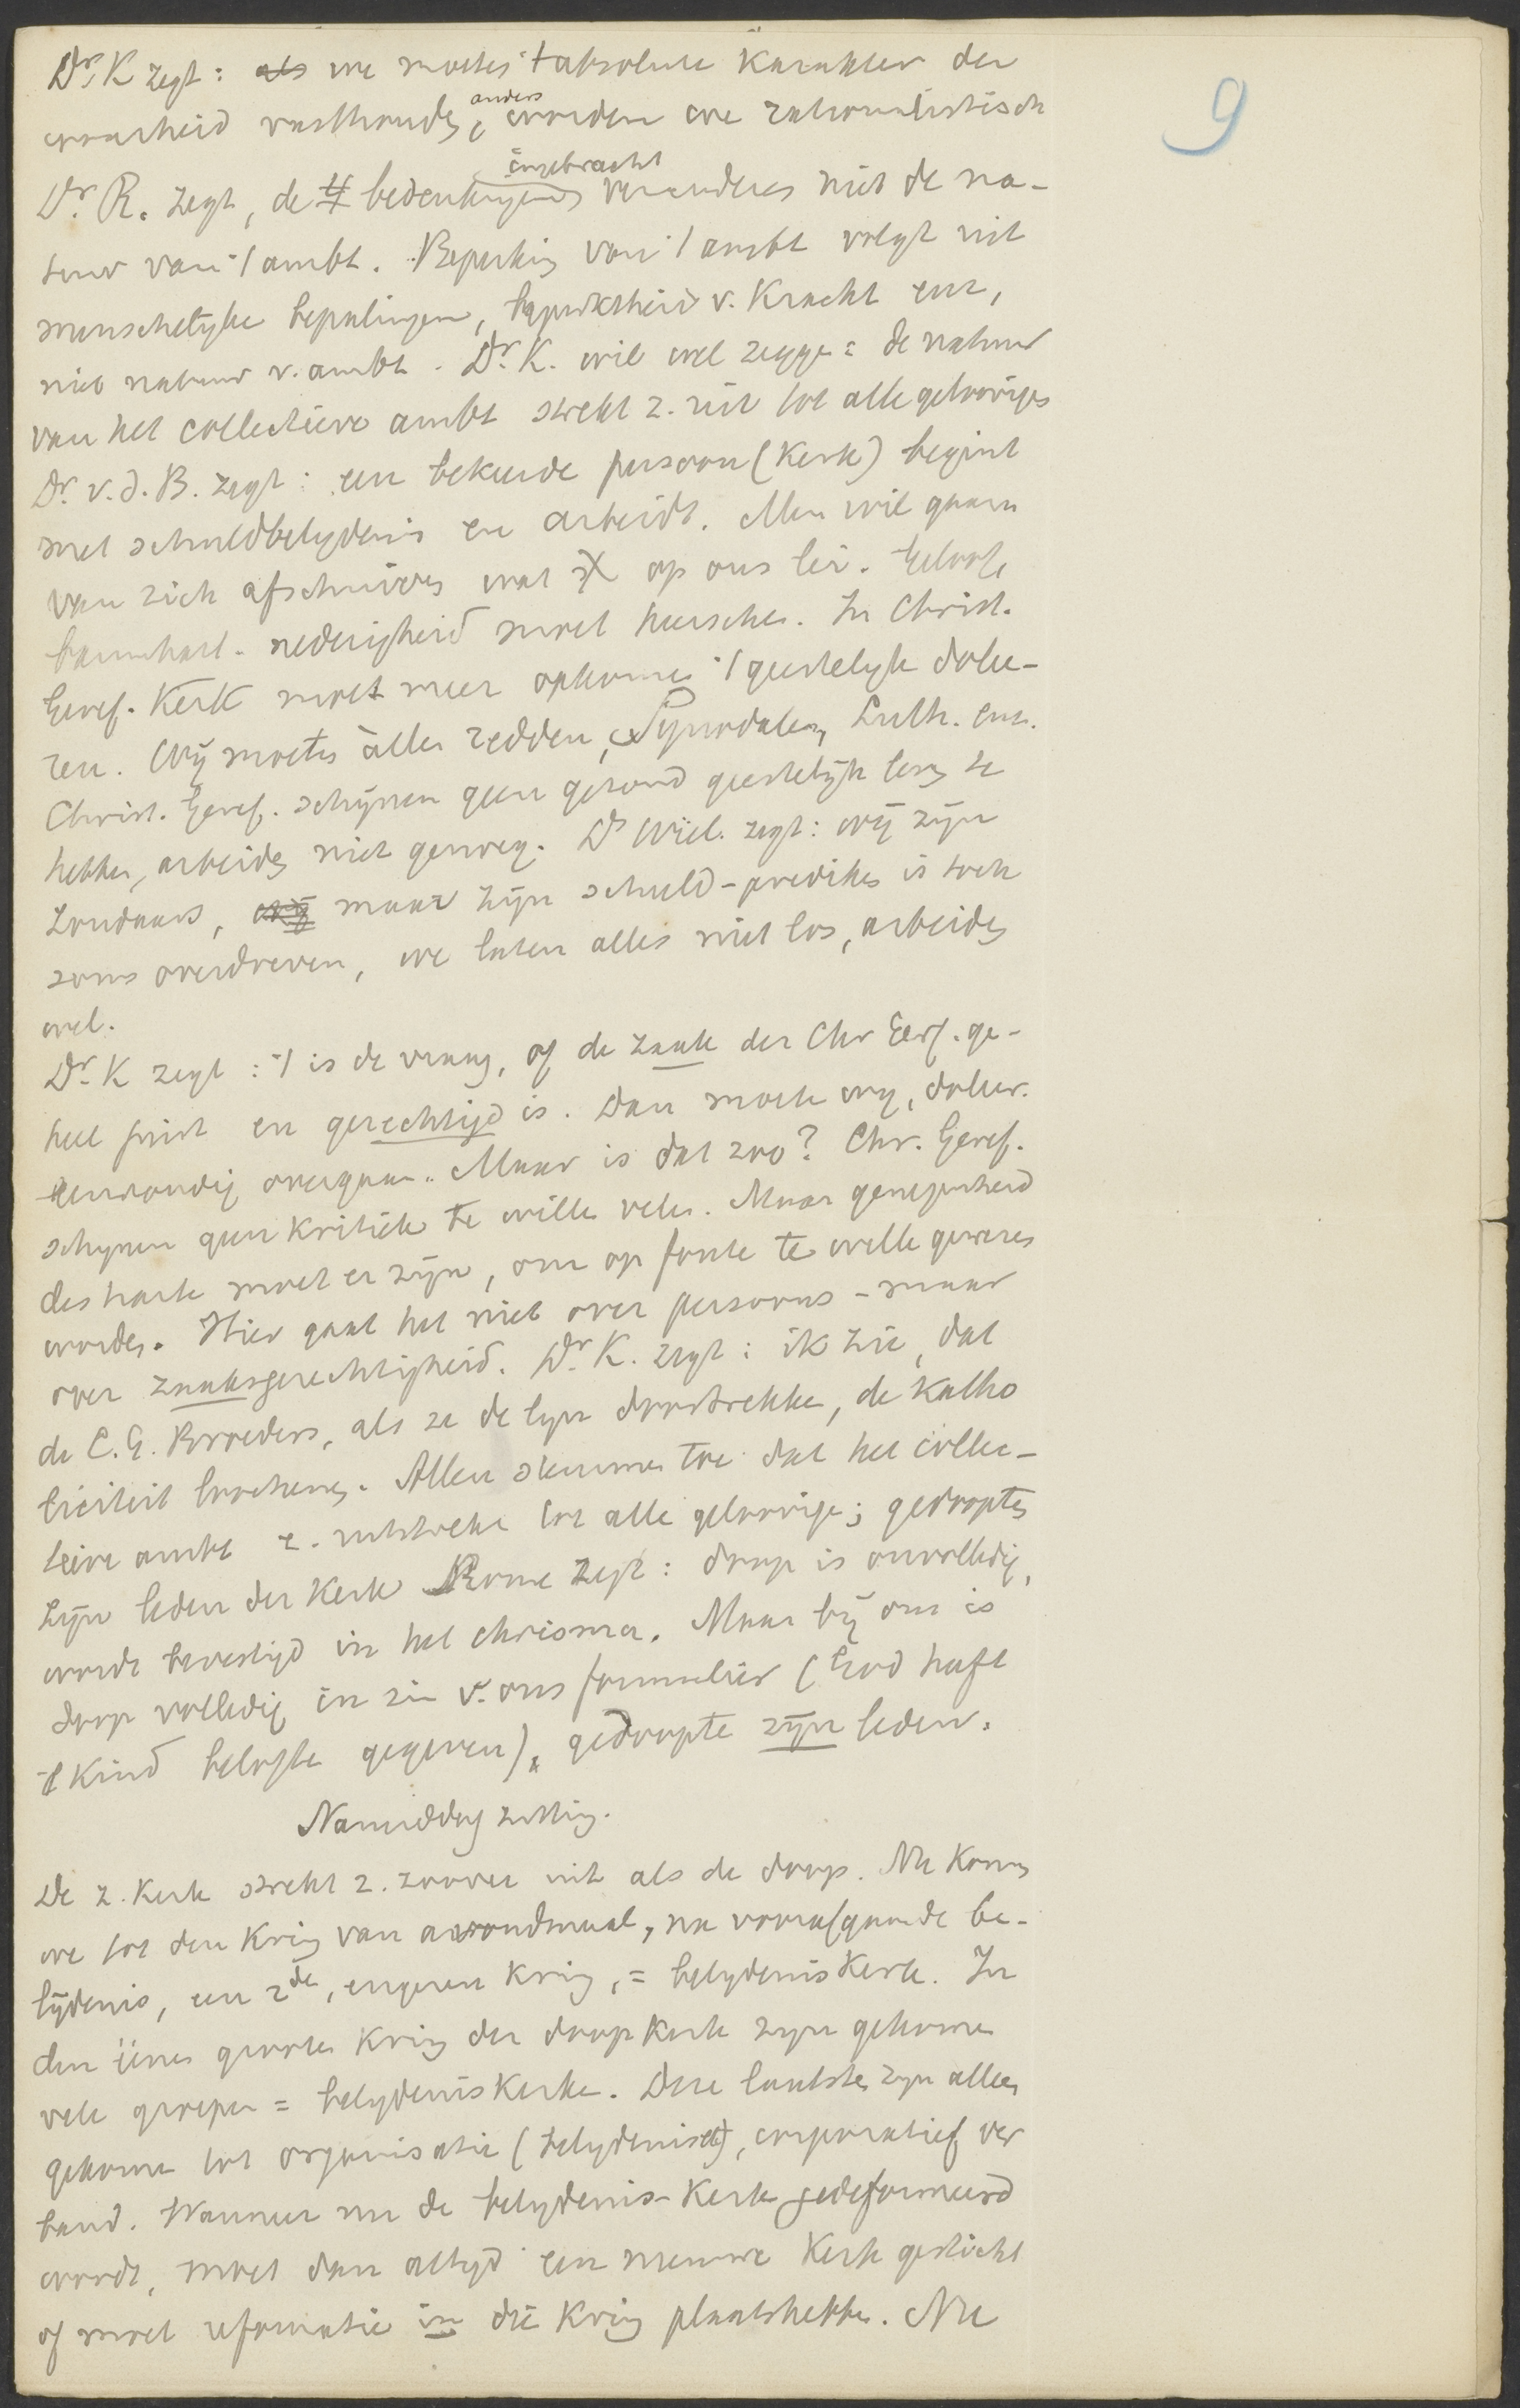 9
Dr. K zegt: als we moeten 't absolute karakter der
waarheid vasthouden, anders worden we rationalistisch
Dr. R. zegt, de 4 bedenkingen ingebracht veranderen niet de na-
tuur van 't ambt. Beperking van 't ambt volgt uit
menschelijke bepalingen, beperktheid v. kracht enz,
niet natuur v. ambt. Dr. K. wil wel zeggen = de natuur
van het collectieve ambt strekt z. uit tot alle geloovigen
Dr. v. d. B. zegt: een bekeerde persoon (kerk) begint
met schuldbelydenis en arbeidt. Men wil gaarn
van zich afschuiven wat op ons lei. Geloof
barmhart. nederigheid moet heerschen. In Christ.
Geref. Kerk moet meer opkomen 't geestelyk dolee-
ren. Wij moeten alles redden, Synodalen, Luth. enz.
Christ. Geref. schijnen geen gezond geestelijk leven te
hebben, arbeiden niet genoeg. Ds Wiel. zegt: wij zijn
zondaars, wij maar zijn schuld-prediken is toch
soms overdreven, we laten alles niet los, arbeiden
wel.
Dr. K zegt: 't is de vraag, of de zaak der Chr Geref. ge-
heel juist en gerechtigd is. Dan moeten wij, doleer.
eenvoudig overgaan. Maar is dat zoo? Chr. Geref.
schynen geen kritiek te willen velen. Maar genegenheid
des harten moet er zijn, om op fouten te willen gewezen
worden. Hier gaat het niet over persoons - maar
over zaaksgerechtigheid. Dr. K. zegt: ik zie, dat
de C. G. Broeders, als ze de lyn doortrekken, de katho
liciteit loochenen. Allen stemmen toe dat het collec-
tieve ambt z. uitstrekt tot alle geloovigen; gedoopten
zijn leden der Kerk Rome zegt: doop is onvolledig,
wordt bevestigd in het chrisma. Maar bij ons is
doop volledig in zin v. ons formulier (God heeft
't kind belofte gegeven), gedoopte zijn leden.
Namiddag zitting.
De z. Kerk strekt z. zoover uit als de doop. Nu komen
we tot den kring van avondmaal, na voorafgaande be-
lijdenis, een 2den, engeren kring, = belydenis Kerk. In
den éénen grooten kring der doopkerk zyn gekomen
vele groepen = belydeniskerken. Deze laatsten zyn alleen
gekomen tot organisatie (belydenis), corporatief ver
band. Wanneer nu de belydenis-Kerk gedeformeerd
wordt, moet dan altyd een nieuwe Kerk gesticht
of moet reformatie in die kring plaatshebben. Nu